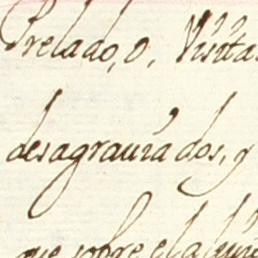 Prelado, o, Visita
desagrauiados, y
que sobre el